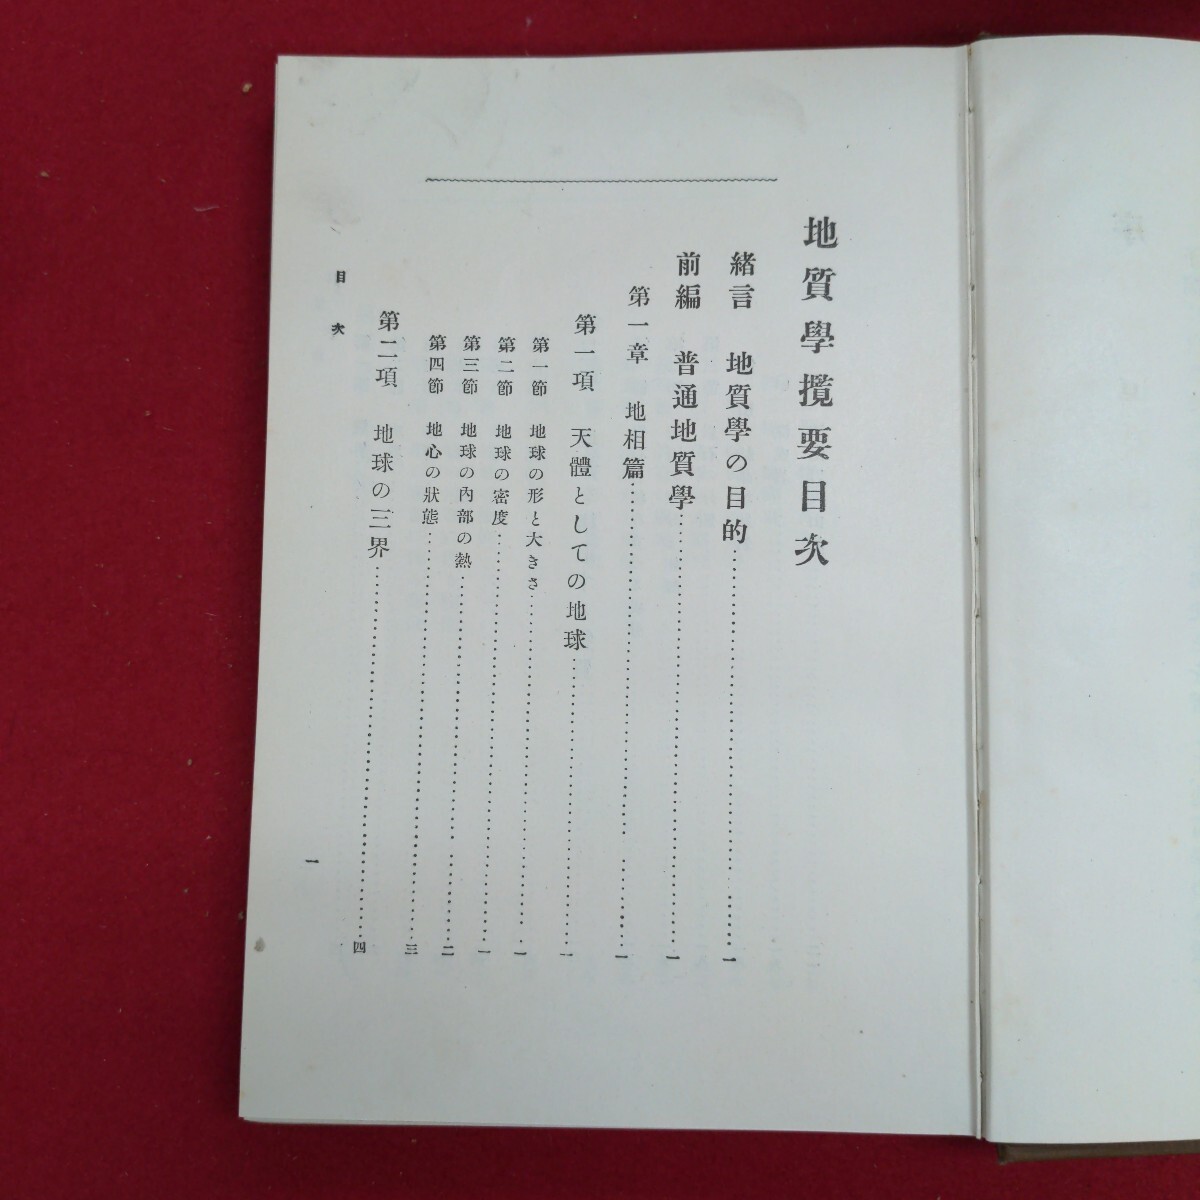 地質學攬要目次
緒言 地質學の目的……一
前編 普通地質學……一
第一章 地相篇……一
第一項 天體としての地球……一
第一節 地球の形と大きさ……一
第二節 地球の密度……一
第三節 地球の內部の熱……二
第四節 地心の狀態……三
第二項 地球の三界……四
目次
一